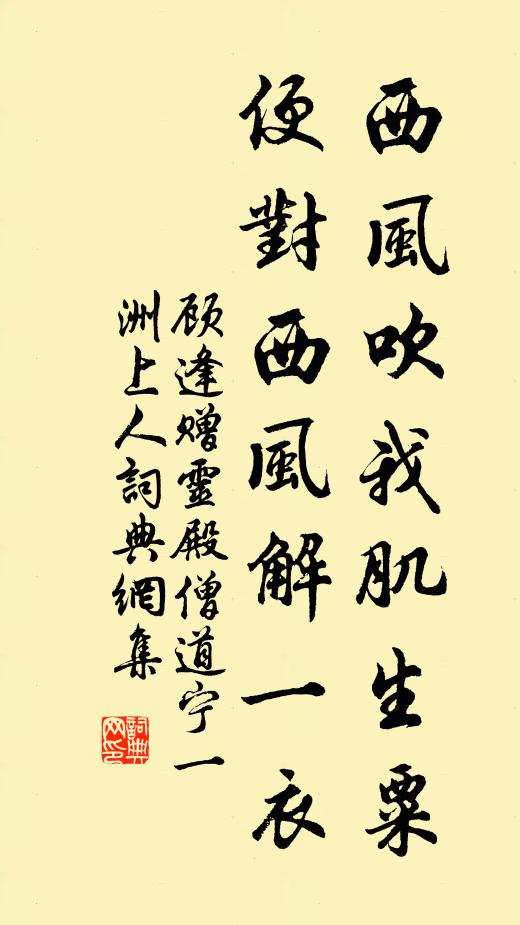 西風吹我肌生粟
便對西風解一衣
顾逢赠靈殿僧道宁一
洲上人詞典網集
詞典网印